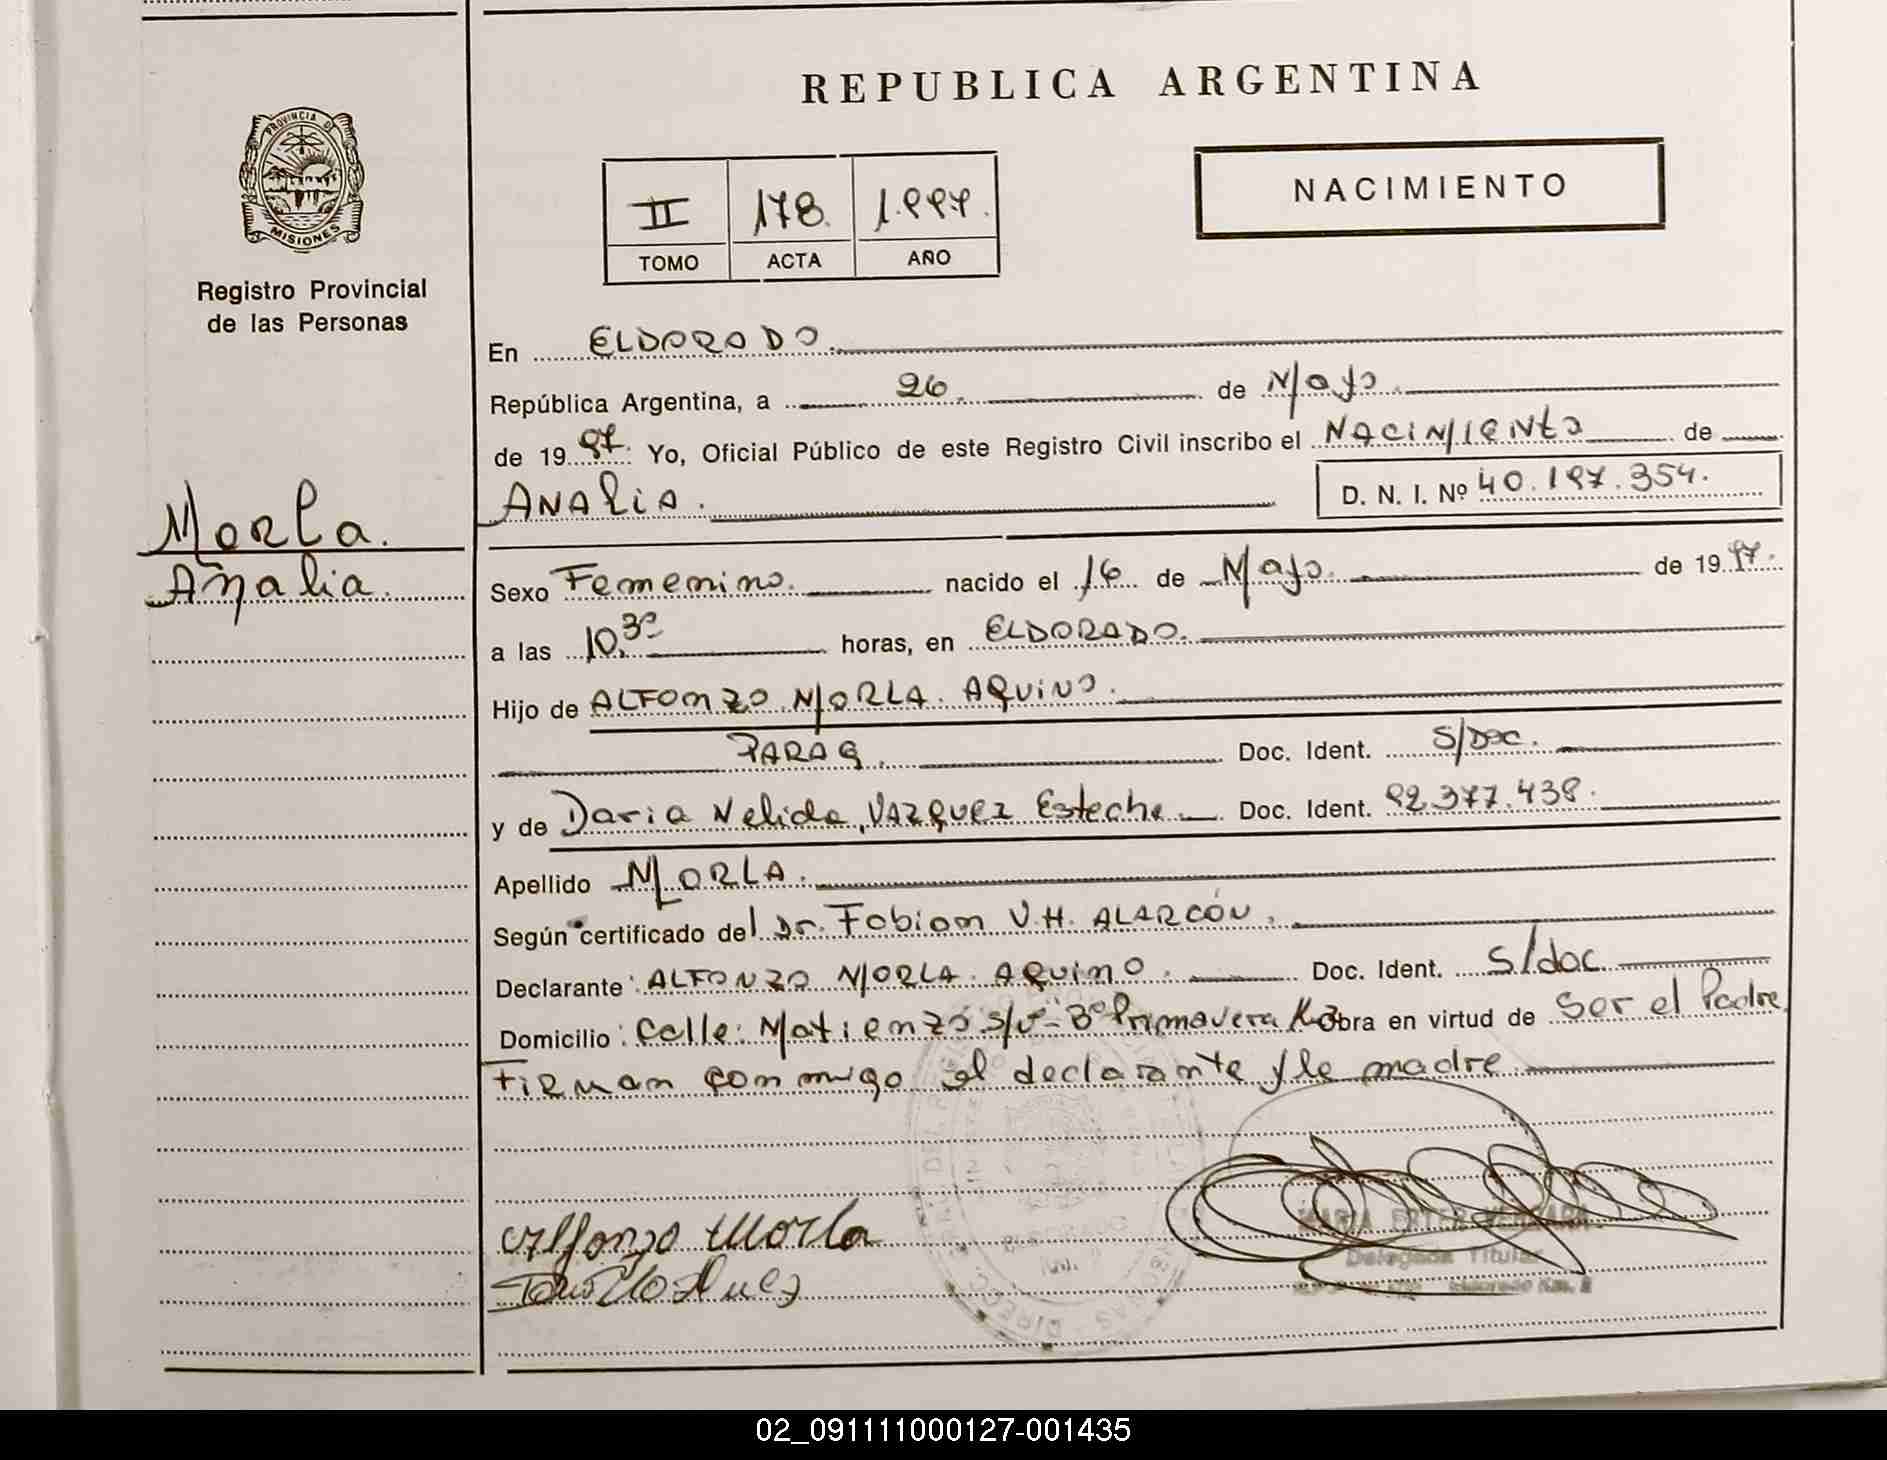 REPUBLICA ARGENTINA
PROVINCIA DE
MISIONES
Registro Provincial
de las Personas
II 178. 1.997.
TOMO ACTA AÑO
NACIMIENTO
Morla.
Analia.
En ELDORADO.
República Argentina, a 26. de Mayo.
de 1997. Yo, Oficial Público de este Registro Civil inscribo el NACIMIENTO de
ANALIA. D. N. I. Nº 40.197.354.
Sexo Femenino. nacido el 16 de Mayo. de 1997.
a las 10,30 horas, en ELDORADO.
Hijo de ALFONZO MORLA. AQUINO.
PARAG. Doc. Ident. S/Doc.
y de Daria Nelida, VAZQUEZ Esteche Doc. Ident. 92.377.438.
Apellido MORLA.
Según certificado del Dr. Fabian V.H. ALARCÓN.
Declarante: ALFONZO MORLA. AQUINO. Doc. Ident. S/doc.
Domicilio: Calle: Matienzo S/nº - Bº Primavera K3 Obra en virtud de Ser el Padre
FIRMAN conmigo el declarante y la madre.
Alfonzo Morla
Delegada Titular
02_091111000127-001435